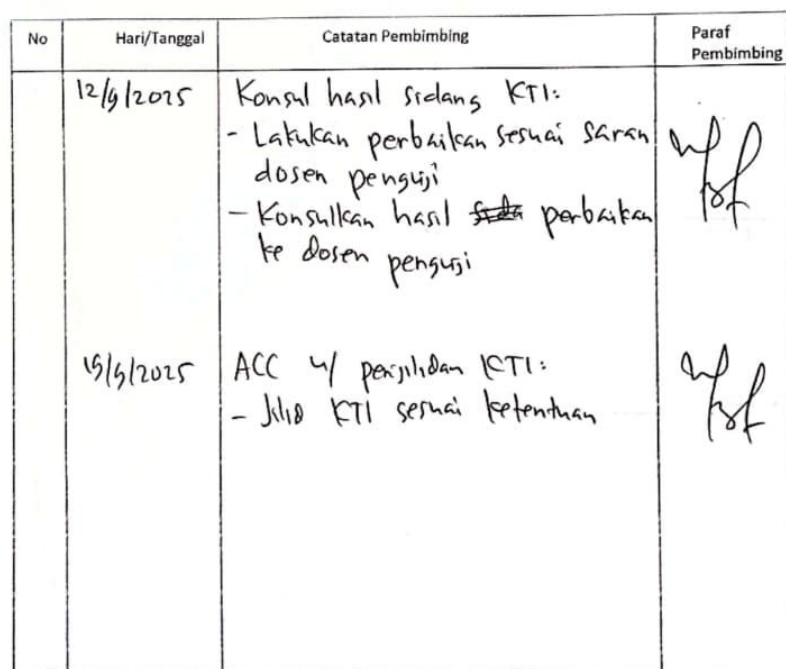 No Hari/Tanggal Catatan Pembimbing Paraf Pembimbing
12/9/2025 Konsul hasil sidang KTI:
- Lakukan perbaikan sesuai saran
dosen penguji
- Konsulkan hasil perbaikan
ke dosen penguji
15/9/2025 ACC u/ penjilidan KTI:
- Jilid KTI sesuai ketentuan